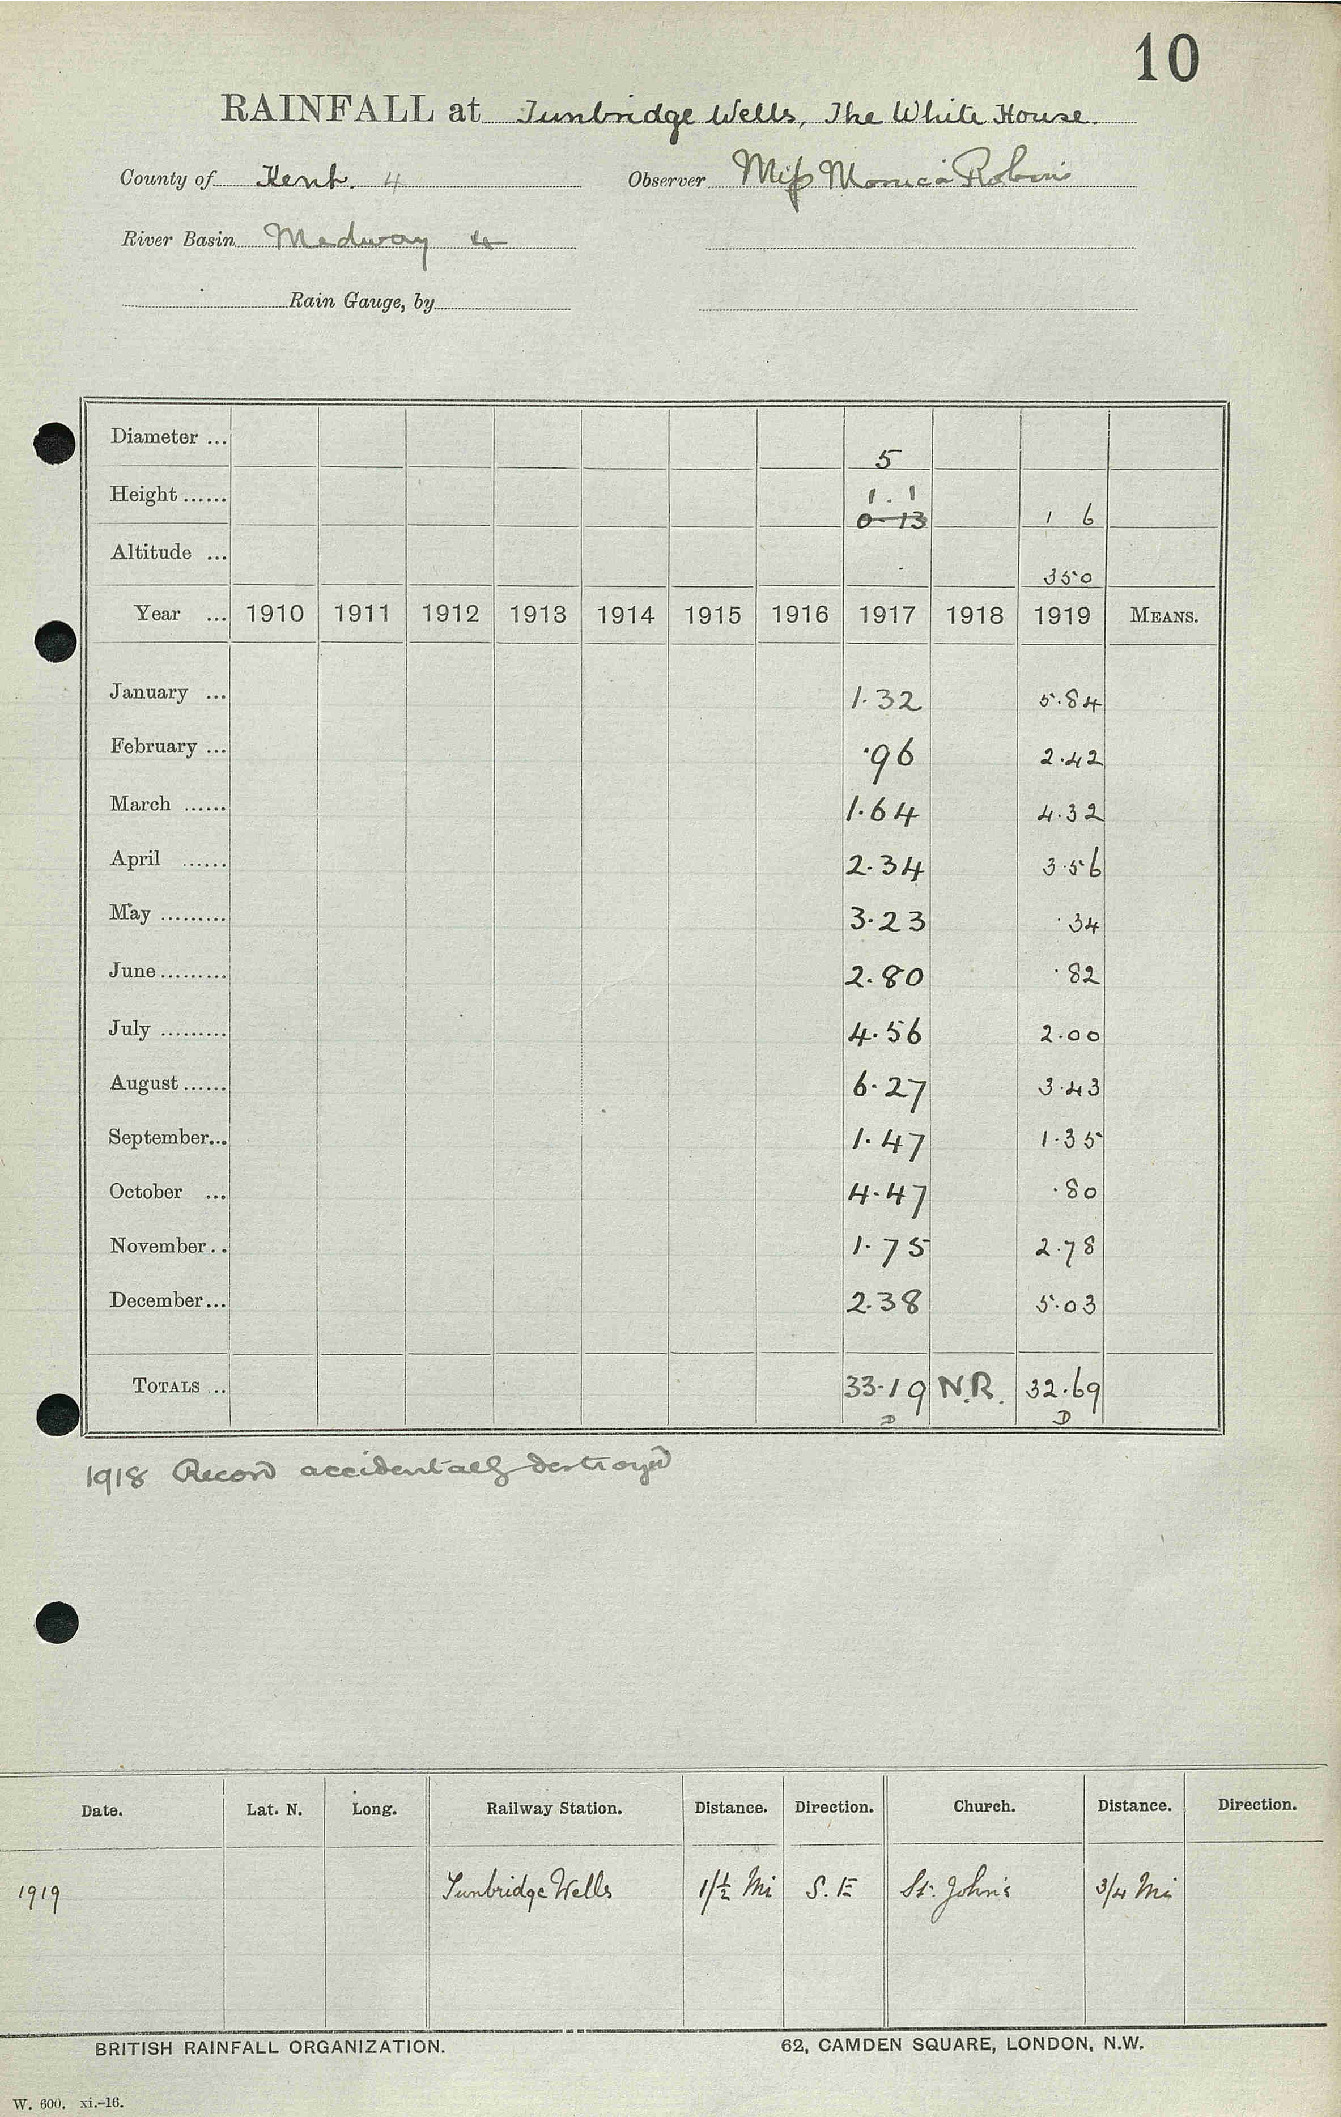 10
RAINFALL at Tunbridge Wells, The White House.
County of Kent. 4 Observer Miss Monica Robins
River Basin Medway 4
Rain Gauge, by
Diameter ... 5
Height ...... 1. 1
0-13 1 6
Altitude ... 350
Year ... 1910 1911 1912 1913 1914 1915 1916 1917 1918 1919 MEANS.
January ... 1.32 5.84
February ... .96 2.42
March ...... 1.64 4.32
April ...... 2.34 3.56
May ......... 3.23 .34
June ......... 2.80 .82
July ......... 4.56 2.00
August ...... 6.27 3.43
September... 1.47 1.35
October ... 4.47 .80
November.. 1.75 2.78
December... 2.38 5.03
TOTALS .. 33.19 N.R. 32.69
D D
1918 Record accidentally destroyed
Date. Lat. N. Long. Railway Station. Distance. Direction. Church. Distance. Direction.
1919 Tunbridge Wells 1 1/2 Mi S.E St. John's 3/4 Mi
BRITISH RAINFALL ORGANIZATION. 62, CAMDEN SQUARE, LONDON, N.W.
W. 600. xi.-16.